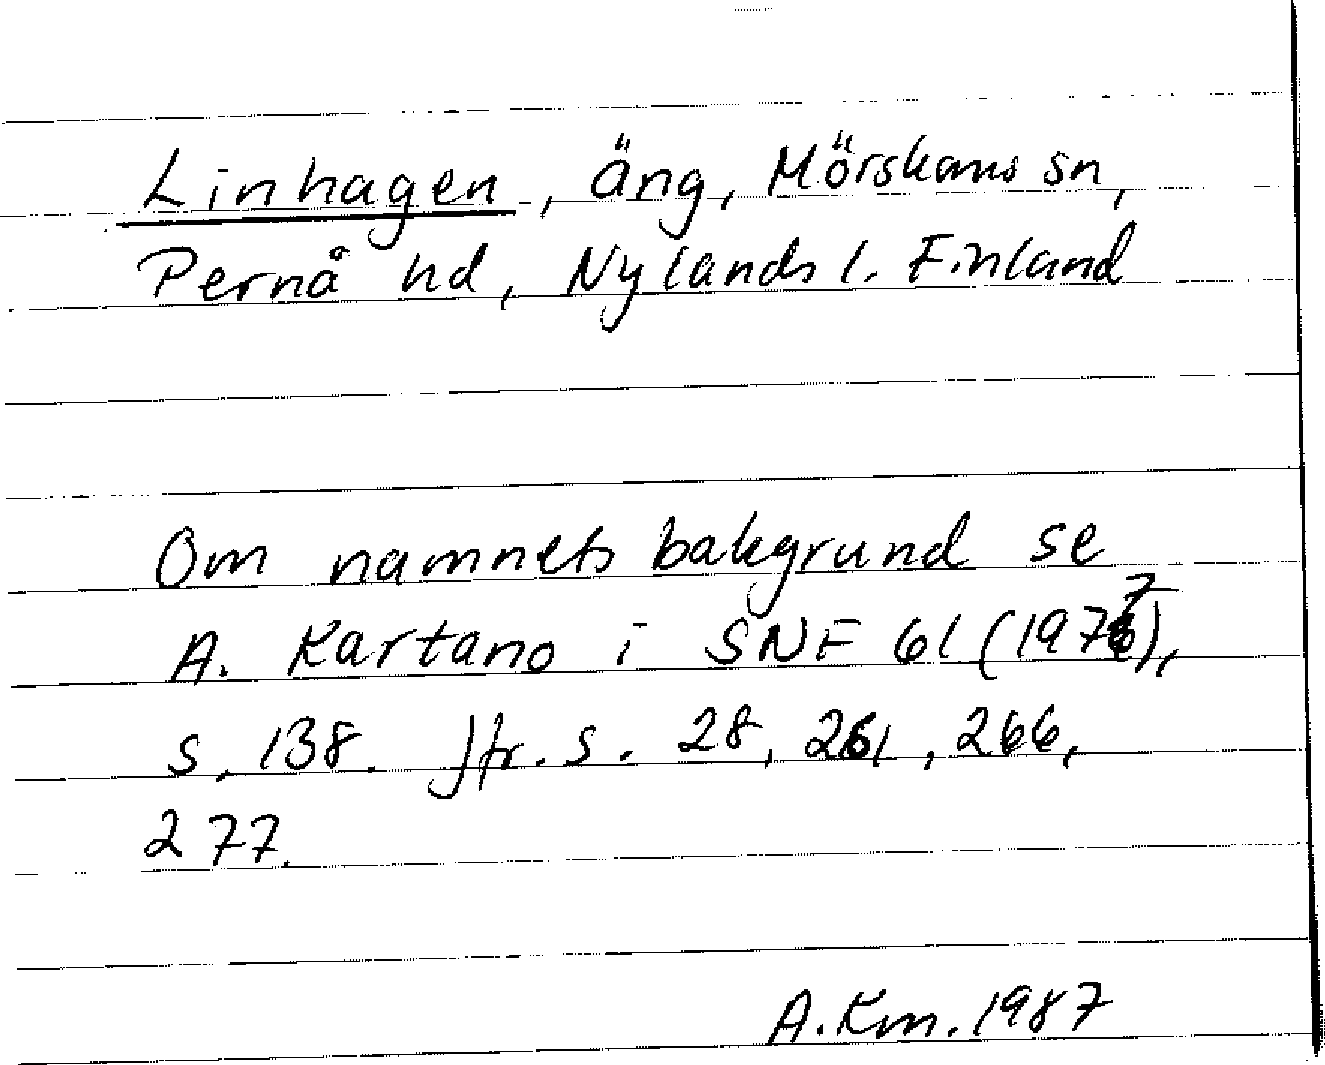 Linhagen, äng, Mörskoms sn,
Pernå hd, Nylands l. Finland
Om namnets bakgrund se
A. Kartano i SNF 61 (1977),
s. 138. Jfr. s. 28, 261, 266,
277.
A.Km. 1987